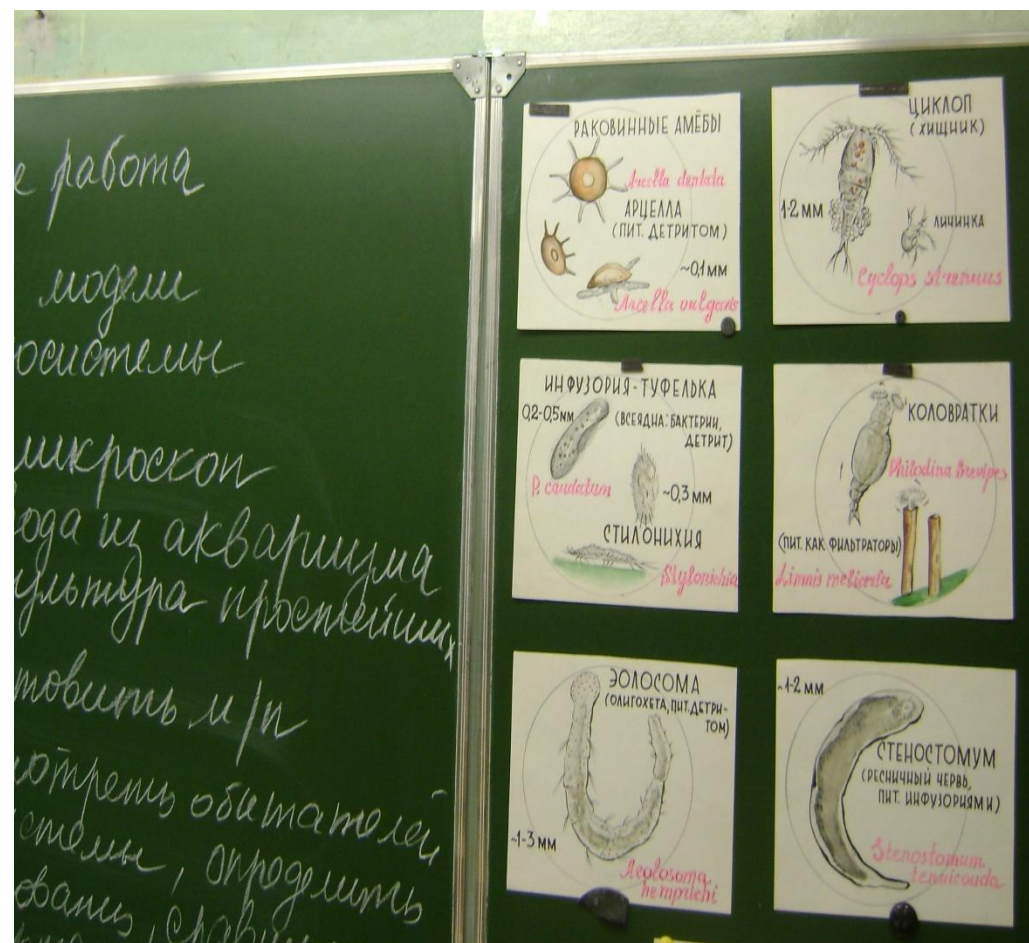 работа
модели
осистемы
микроскоп
вода из аквариума
культура простейших
товить м/п
отреть обитателей
стемы, определить
РАКОВИННЫЕ АМЁБЫ
Arcella dentata
АРЦЕЛЛА
(ПИТ. ДЕТРИТОМ)
~0,1 мм
Arcella vulgaris
ЦИКЛОП
(ХИЩНИК)
1-2 мм
ЛИЧИНКА
Cyclops strenuus
ИНФУЗОРИЯ-ТУФЕЛЬКА
0,2-0,5 мм
(ВСЕЯДНА: БАКТЕРИИ,
ДЕТРИТ)
P. caudatum
~0,3 мм
СТИЛОНИХИЯ
Stylonichia
КОЛОВРАТКИ
Philodina brevipes
(ПИТ. КАК ФИЛЬТРАТОРЫ)
Limnis melicerta
ЭОЛОСОМА
(ОЛИГОХЕТА, ПИТ. ДЕТРИ-
ТОМ)
~1-3 мм
Aeolosoma
hemprichi
~1-2 мм
СТЕНОСТОМУМ
(РЕСНИЧНЫЙ ЧЕРВЬ,
ПИТ. ИНФУЗОРИЯМИ)
Stenostomum
tenuicauda